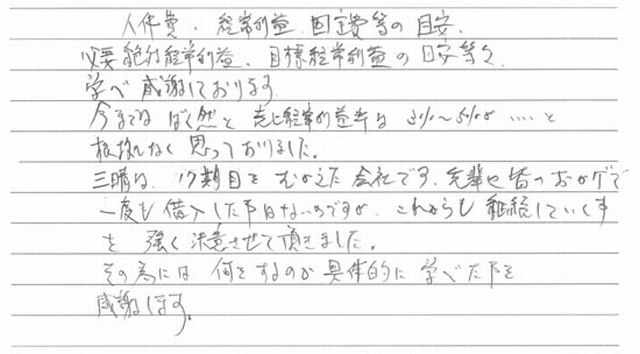 人件費、経常利益、固定費等の目安、
必要絶対経常利益、目標経常利益の目安等々、
学べ感謝しております。
今までは ばく然と 売上経常利益率は 3%〜5%が‥‥と
根拠なく思っておりました。
三晴は、17期目をむかえた会社です。先輩や皆のおかげで
一度も借入した事はないのですが、これからも継続していく事
を 強く決意させて頂きました。
その為には 何をするのか具体的に学べた事を
感謝します。